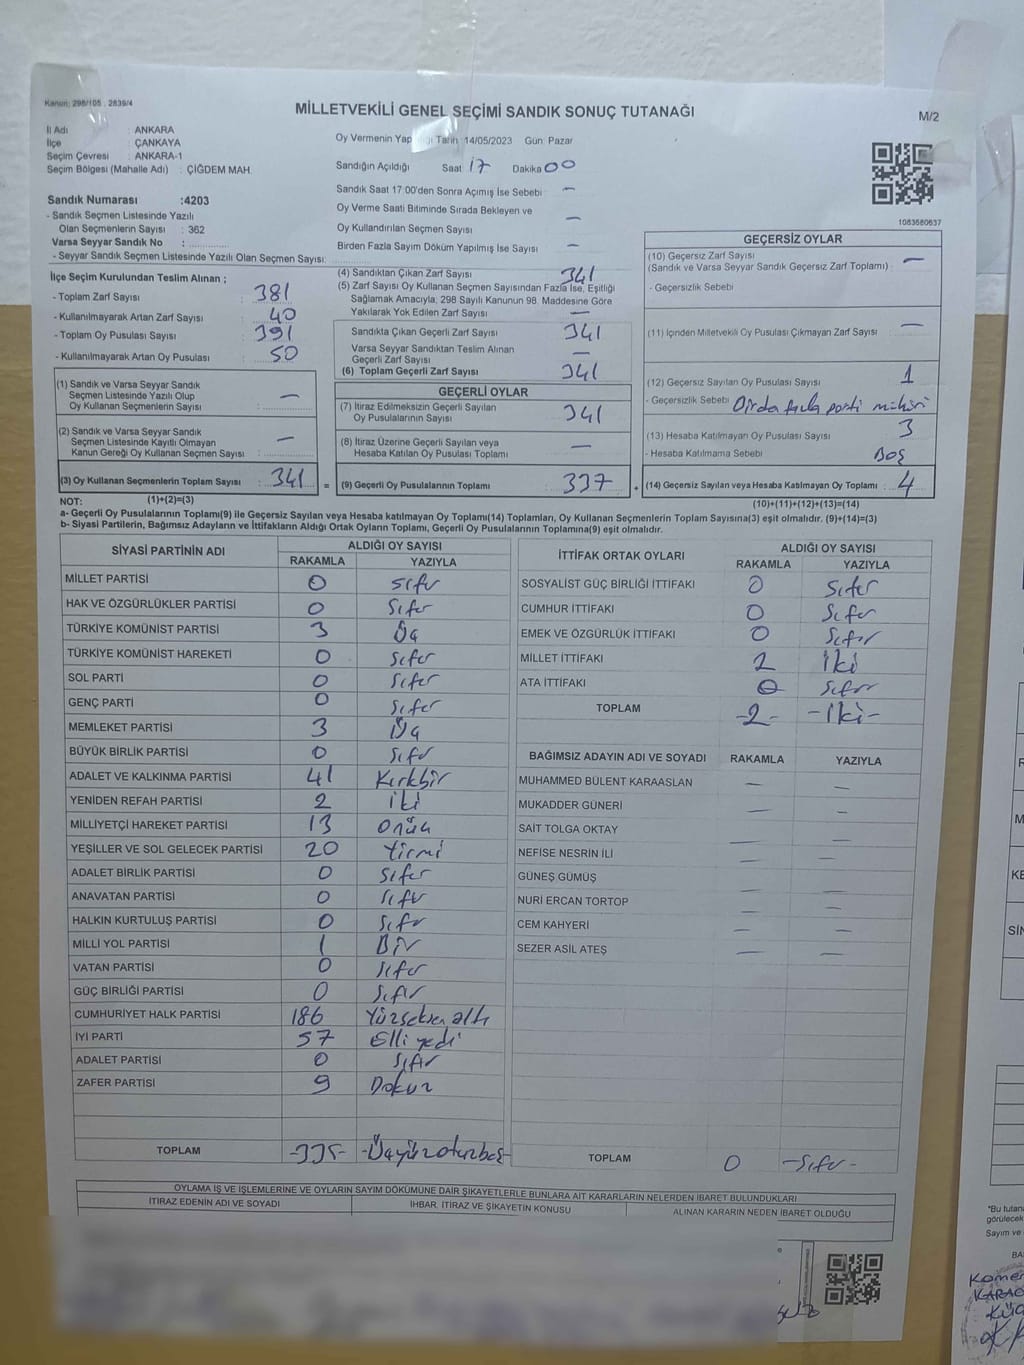 Kanun: 298/105 , 2839/4
MİLLETVEKİLİ GENEL SEÇİMİ SANDIK SONUÇ TUTANAĞI
M/2
İl Adı : ANKARA
İlçe : ÇANKAYA
Seçim Çevresi : ANKARA-1
Seçim Bölgesi (Mahalle Adı) : ÇİĞDEM MAH.
Oy Vermenin Yap Tarih 14/05/2023 Gün: Pazar
Sandığın Açıldığı Saat 17 Dakika 00
Sandık Saat 17:00'den Sonra Açımış İse Sebebi : —
Oy Verme Saati Bitiminde Sırada Bekleyen ve
Oy Kullandırılan Seçmen Sayısı : —
Birden Fazla Sayım Döküm Yapılmış İse Sayısı : —
1083580637
Sandık Numarası :4203
- Sandık Seçmen Listesinde Yazılı
Olan Seçmenlerin Sayısı : 362
Varsa Seyyar Sandık No :
- Seyyar Sandık Seçmen Listesinde Yazılı Olan Seçmen Sayısı:
İlçe Seçim Kurulundan Teslim Alınan ;
- Toplam Zarf Sayısı : 381
- Kullanılmayarak Artan Zarf Sayısı : 40
- Toplam Oy Pusulası Sayısı : 391
- Kullanılmayarak Artan Oy Pusulası : 50
(1) Sandık ve Varsa Seyyar Sandık
Seçmen Listesinde Yazılı Olup
Oy Kullanan Seçmenlerin Sayısı : —
(2) Sandık ve Varsa Seyyar Sandık
Seçmen Listesinde Kayıtlı Olmayan
Kanun Gereği Oy Kullanan Seçmen Sayısı : —
(3) Oy Kullanan Seçmenlerin Toplam Sayısı : 341 =
(4) Sandıktan Çıkan Zarf Sayısı 341
(5) Zarf Sayısı Oy Kullanan Seçmen Sayısından Fazla İse, Eşitliği
Sağlamak Amacıyla, 298 Sayılı Kanunun 98. Maddesine Göre
Yakılarak Yok Edilen Zarf Sayısı : —
Sandıkta Çıkan Geçerli Zarf Sayısı : 341
Varsa Seyyar Sandıktan Teslim Alınan
Geçerli Zarf Sayısı : —
(6) Toplam Geçerli Zarf Sayısı : 341
GEÇERLİ OYLAR
(7) İtiraz Edilmeksizin Geçerli Sayılan
Oy Pusulalarının Sayısı : 341
(8) İtiraz Üzerine Geçerli Sayılan veya
Hesaba Katılan Oy Pusulası Toplamı : —
(9) Geçerli Oy Pusulalarının Toplamı : 337 +
GEÇERSİZ OYLAR
(10) Geçersiz Zarf Sayısı
(Sandık ve Varsa Seyyar Sandık Geçersiz Zarf Toplamı) : —
- Geçersizlik Sebebi
(11) İçinden Milletvekili Oy Pusulası Çıkmayan Zarf Sayısı : —
(12) Geçersiz Sayılan Oy Pusulası Sayısı : 1
- Geçersizlik Sebebi Birda fazla parti mühürü
(13) Hesaba Katılmayan Oy Pusulası Sayısı : 3
- Hesaba Katılmama Sebebi Boş
(14) Geçersiz Sayılan veya Hesaba Katılmayan Oy Toplamı : 4
NOT: (1)+(2)=(3)
(10)+(11)+(12)+(13)=(14)
a- Geçerli Oy Pusulalarının Toplamı(9) ile Geçersiz Sayılan veya Hesaba katılmayan Oy Toplamı(14) Toplamları, Oy Kullanan Seçmenlerin Toplam Sayısına(3) eşit olmalıdır. (9)+(14)=(3)
b- Siyasi Partilerin, Bağımsız Adayların ve İttifakların Aldığı Ortak Oyların Toplamı, Geçerli Oy Pusulalarının Toplamına(9) eşit olmalıdır.
SİYASİ PARTİNİN ADI ALDIĞI OY SAYISI
RAKAMLA YAZIYLA
MİLLET PARTİSİ 0 sıfır
HAK VE ÖZGÜRLÜKLER PARTİSİ 0 Sıfır
TÜRKİYE KOMÜNİST PARTİSİ 3 Üç
TÜRKİYE KOMÜNİST HAREKETİ 0 Sıfır
SOL PARTİ 0 Sıfır
GENÇ PARTİ 0 Sıfır
MEMLEKET PARTİSİ 3 Üç
BÜYÜK BİRLİK PARTİSİ 0 Sıfır
ADALET VE KALKINMA PARTİSİ 41 Kırkbir
YENİDEN REFAH PARTİSİ 2 İki
MİLLİYETÇİ HAREKET PARTİSİ 13 Onüç
YEŞİLLER VE SOL GELECEK PARTİSİ 20 Yirmi
ADALET BİRLİK PARTİSİ 0 Sıfır
ANAVATAN PARTİSİ 0 Sıfır
HALKIN KURTULUŞ PARTİSİ 0 Sıfır
MİLLİ YOL PARTİSİ 1 Bir
VATAN PARTİSİ 0 Sıfır
GÜÇ BİRLİĞİ PARTİSİ 0 Sıfır
CUMHURİYET HALK PARTİSİ 186 Yüzseksen altı
İYİ PARTİ 57 Elli yedi
ADALET PARTİSİ 0 Sıfır
ZAFER PARTİSİ 9 Dokuz
TOPLAM -335- -Üçyüzotuzbeş-
İTTİFAK ORTAK OYLARI ALDIĞI OY SAYISI
RAKAMLA YAZIYLA
SOSYALİST GÜÇ BİRLİĞİ İTTİFAKI 0 Sıfır
CUMHUR İTTİFAKI 0 Sıfır
EMEK VE ÖZGÜRLÜK İTTİFAKI 0 Sıfır
MİLLET İTTİFAKI 2 İki
ATA İTTİFAKI 0 Sıfır
TOPLAM -2- -İki-
BAĞIMSIZ ADAYIN ADI VE SOYADI RAKAMLA YAZIYLA
MUHAMMED BÜLENT KARAASLAN — —
MUKADDER GÜNERİ — —
SAİT TOLGA OKTAY — —
NEFİSE NESRİN İLİ — —
GÜNEŞ GÜMÜŞ — —
NURİ ERCAN TORTOP — —
CEM KAHYERİ — —
SEZER ASİL ATEŞ — —
TOPLAM 0 -Sıfır-
OYLAMA İŞ VE İŞLEMLERİNE VE OYLARIN SAYIM DÖKÜMÜNE DAİR ŞİKAYETLERLE BUNLARA AİT KARARLARIN NELERDEN İBARET BULUNDUKLARI
İTİRAZ EDENİN ADI VE SOYADI İHBAR, İTİRAZ VE ŞİKAYETİN KONUSU ALINAN KARARIN NEDEN İBARET OLDUĞU
*Bu tutana
görülecek
Sayım ve
BA